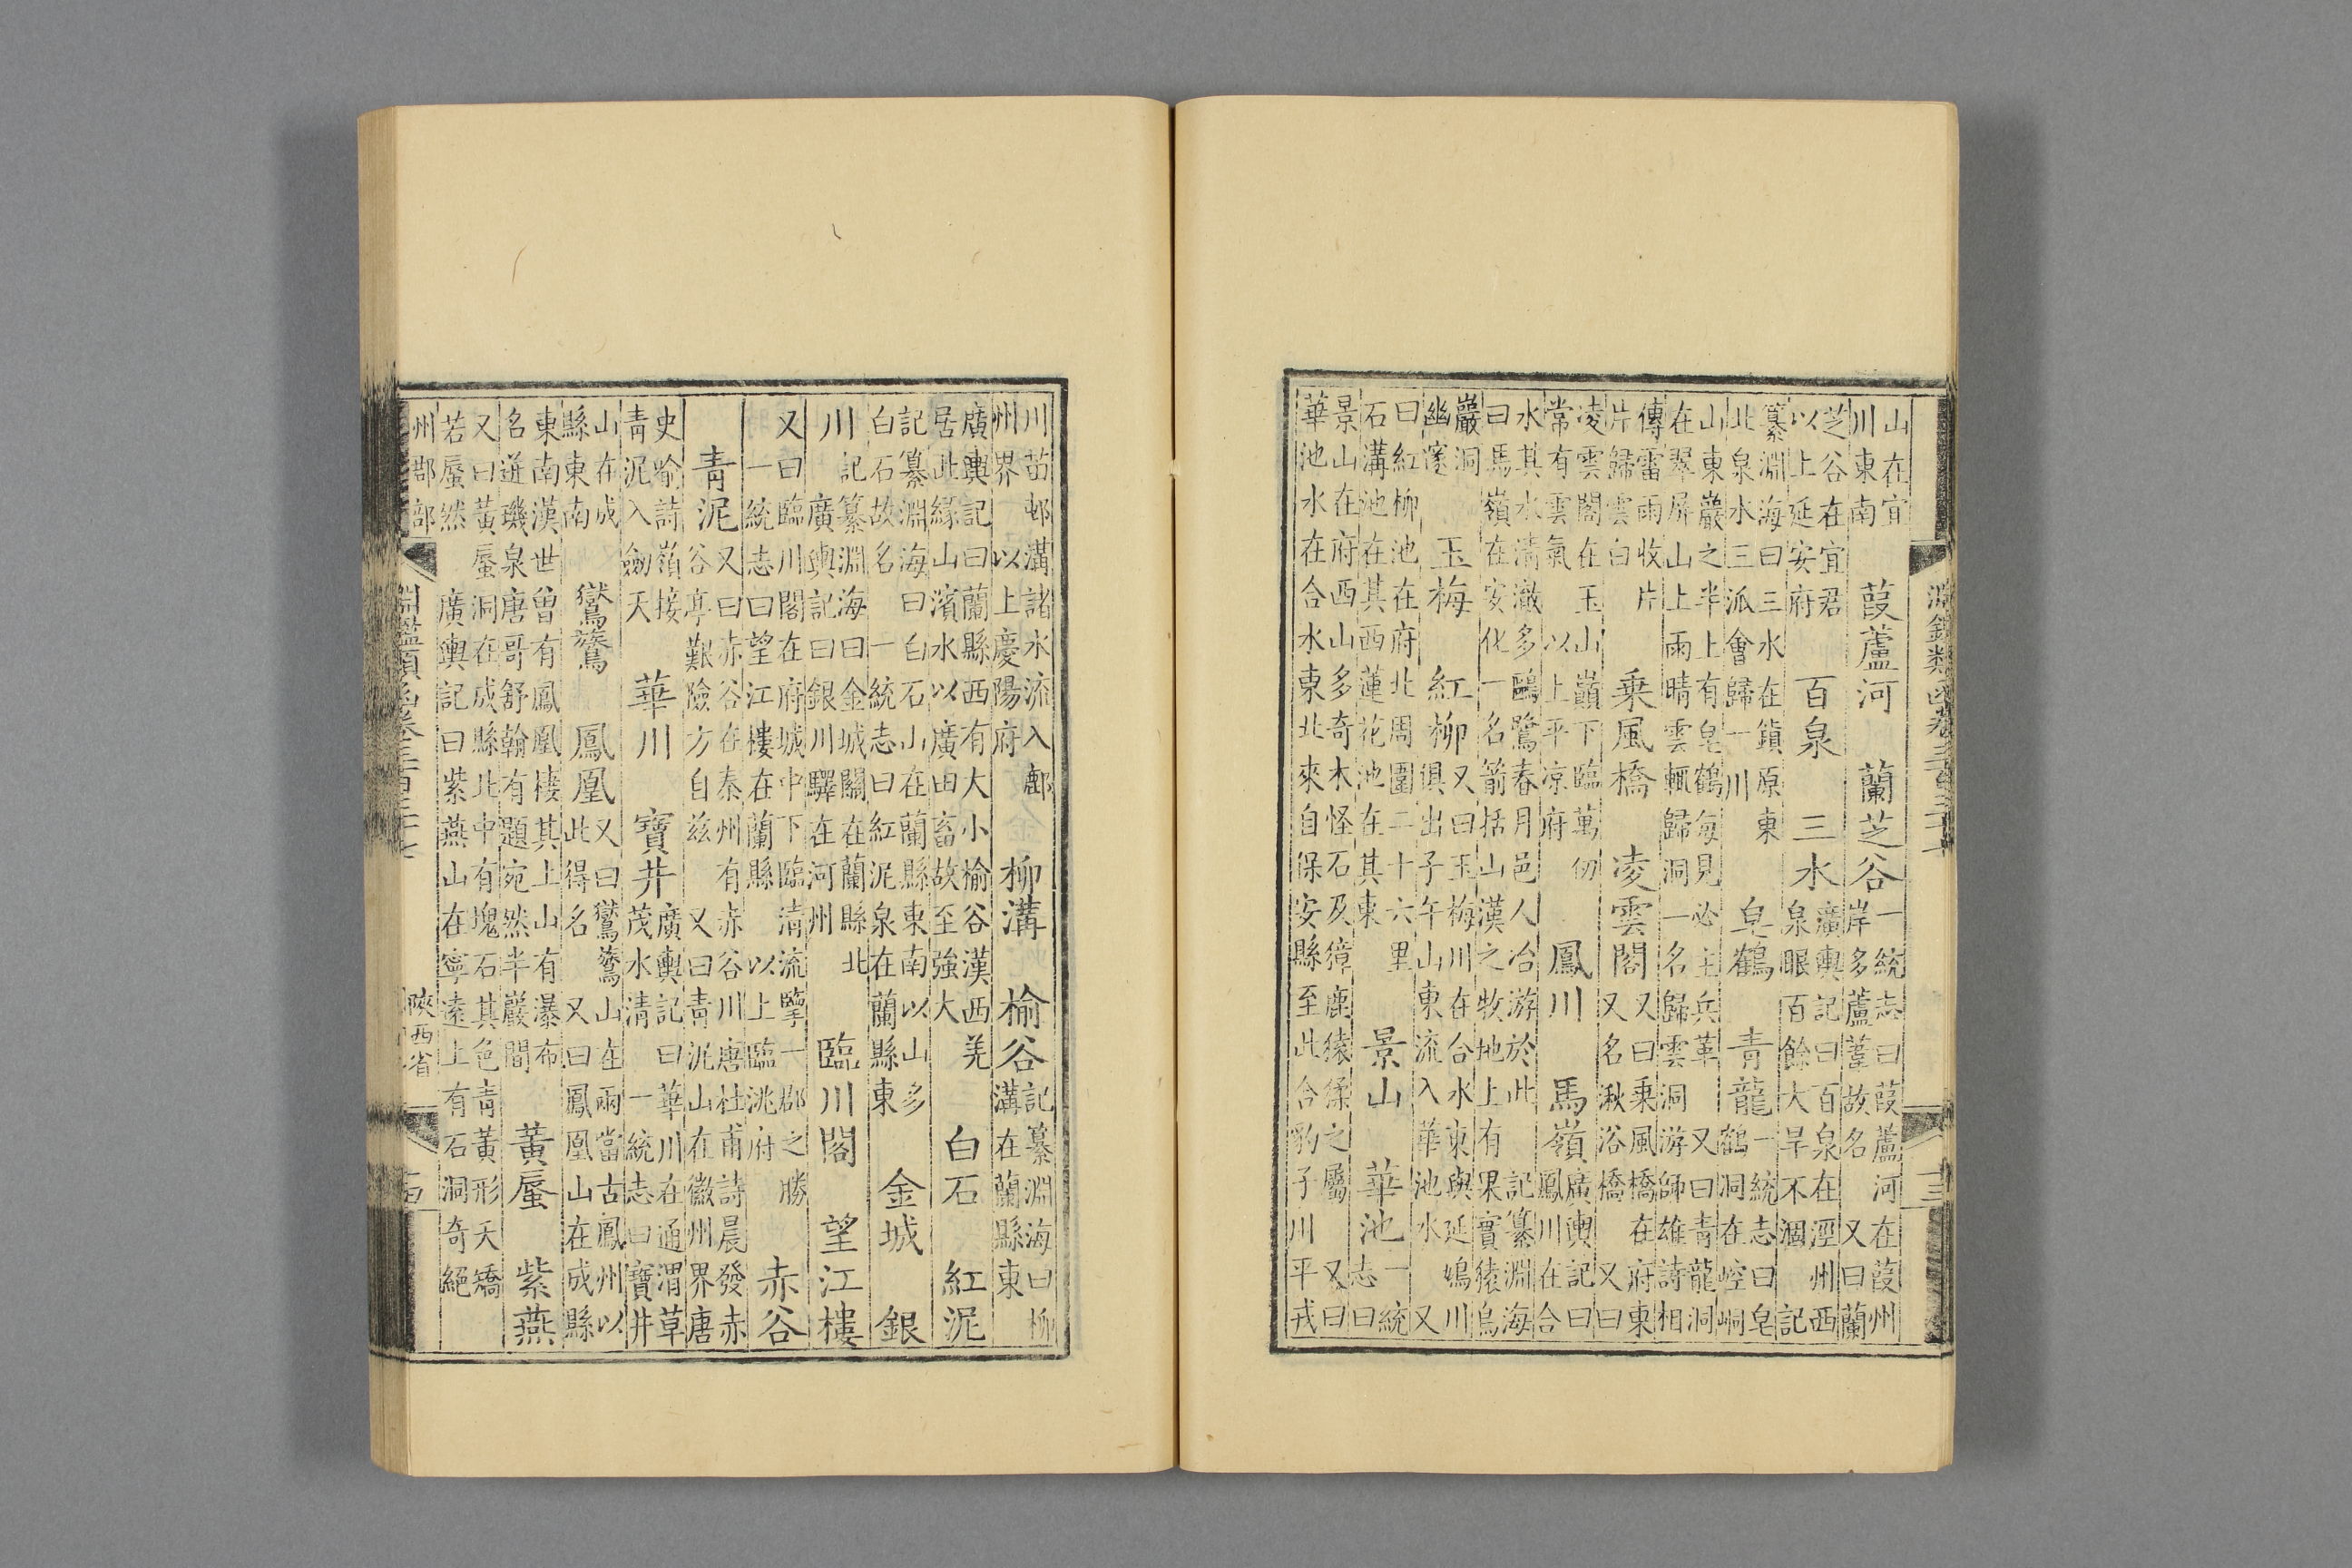 淵鑑類函
山在宜
川東南
葭蘆河 蘭芝谷
一統志曰葭蘆河在葭州
岸多蘆葦故名 又曰蘭
芝谷在宜君
以上延安府
百泉 三水
廣輿記曰百泉在涇州西
泉眼百餘大旱不涸 記
纂淵海曰三水在鎮原東
北泉水三派會歸一川
皁鶴 青龍
一統志曰皁
鶴洞在崆峒
山東巖之半上有皁鶴每見必主兵革 又曰青龍洞
在翠屏山上雨晴雲輒歸洞一名歸雲洞游師雄詩相
傳雷雨收片
片歸雲白
乗風橋 凌雲閣
又曰乗風橋在府東
又名湫浴橋 又曰
凌雲閣在玉山巔下臨萬仞
常有雲氣 以上平凉府
鳳川 馬嶺
廣輿記曰
鳳川在合
水其水清澈多鷗鷺春月邑人冶游於此 記纂淵海
曰馬嶺在安化一名箭括山漢之牧地上有果實猿鳥
巖洞
幽邃
玉梅 紅柳
又曰玉梅川在合水東與延嬀川
俱出子午山東流入華池水 又
曰紅柳池在府北周圍二十六里
石溝池在其西蓮花池在其東
景山 華池
一統
志曰
景山在府西山多奇木怪石及獐鹿猿猱之屬 又曰
華池水在合水東北來自保安縣至此合豹子川平戎
川苗邨溝諸水流入鄜
州界 以上慶陽府
柳溝 榆谷
記纂淵海曰柳
溝在蘭縣東
廣輿記曰蘭縣西有大小榆谷漢西羌
居此緣山濱水以廣田畜故至強大
白石 紅泥
記纂淵海曰白石山在蘭縣東南以山多
白石故名 一統志曰紅泥泉在蘭縣東
金城 銀
川
記纂淵海曰金城關在蘭縣北
廣輿記曰銀川驛在河州
臨川閣 望江樓
又曰臨川閣在府城中下臨清流擥一郡之勝
又一統志曰望江樓在蘭縣 以上臨洮府
赤谷
青泥
又曰赤谷在秦州有赤谷川唐杜甫詩晨發赤
谷亭艱險方自兹 又曰青泥山在徽州界唐
史喻詩嶺接
青泥入劒天
華川 寶井
廣輿記曰華川在通渭草
茂水清 一統志曰寶井
山在成
縣東南
鸑鷟 鳳凰
又曰鸑鷟山在兩當古鳳州以
此得名 又曰鳳凰山在成縣
東南漢世曾有鳳凰棲其上山有瀑布
名迸璣泉唐哥舒翰有題宛然半巖間
黃蜃 紫燕
又曰黃蜃洞在成縣北中有塊石其色青黃形夭矯
若蜃然 廣輿記曰紫燕山在寧遠上有石洞奇絕
州郡部
陝西省